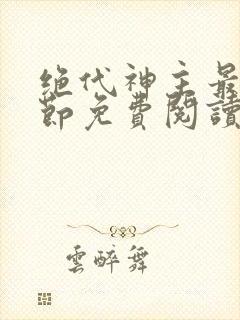 絕代神主最
節免費閱讀
雲醉舞